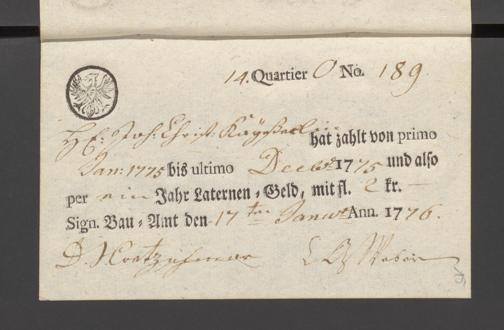 14. Quartier O No. 189.
HE: Joh: Christ: Käyßerl hat zahlt von primo
Jan: 1775 bis ultimo Decbr 1775 und also
per ein Jahr Laternen-Geld, mit fl. 2 kr. —
Sign. Bau-Amt den 17ten Januar Ann. 1776.